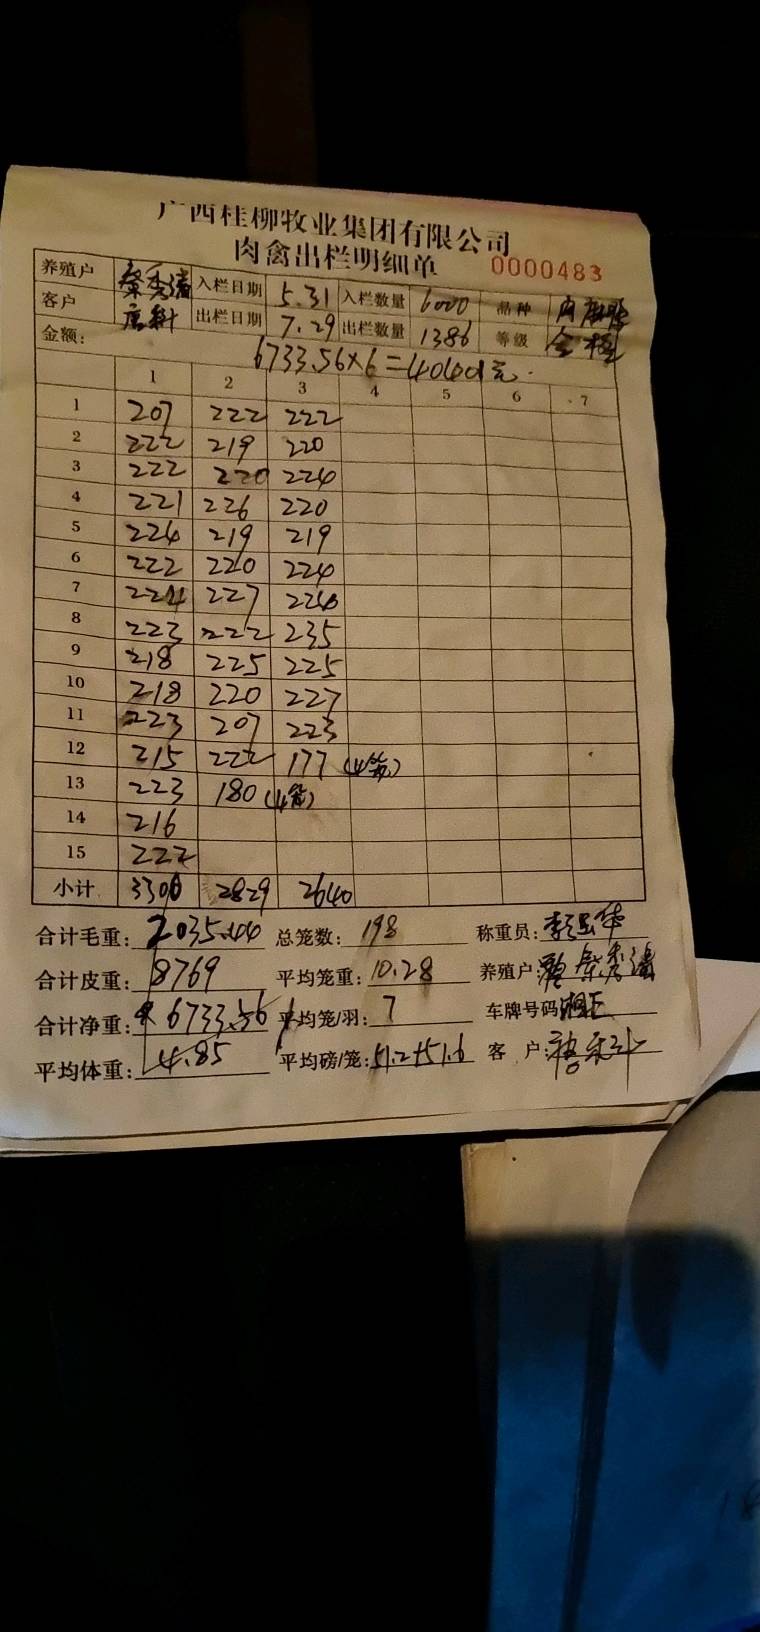 广西桂柳牧业集团有限公司
肉禽出栏明细单 0000483
养殖户 秦秀清 入栏日期 5.31 入栏数量 6000 品种 肉麻鸭
客户 出栏日期 7.29 出栏数量 1386 等级
金额: 6733.56×6=40401元
1 2 3 4 5 6 7
1 207 222 222
2 222 219 220
3 222 220 224
4 221 226 220
5 224 219 219
6 222 220 224
7 224 227 224
8 223 222 235
9 218 225 225
10 218 220 227
11 223 207 223
12 215 222 177 (4笼)
13 223 180 (4笼)
14 216
15 222
小计 3300 2829 2640
合计毛重: 2035.44 总笼数: 198 称重员:
合计皮重: 8769 平均笼重: 10.28 养殖户: 秦秀清
合计净重: 6733.56 平均笼/羽: 7 车牌号码
平均体重: 4.85 平均磅/笼: 51.2+51.6 客 户: